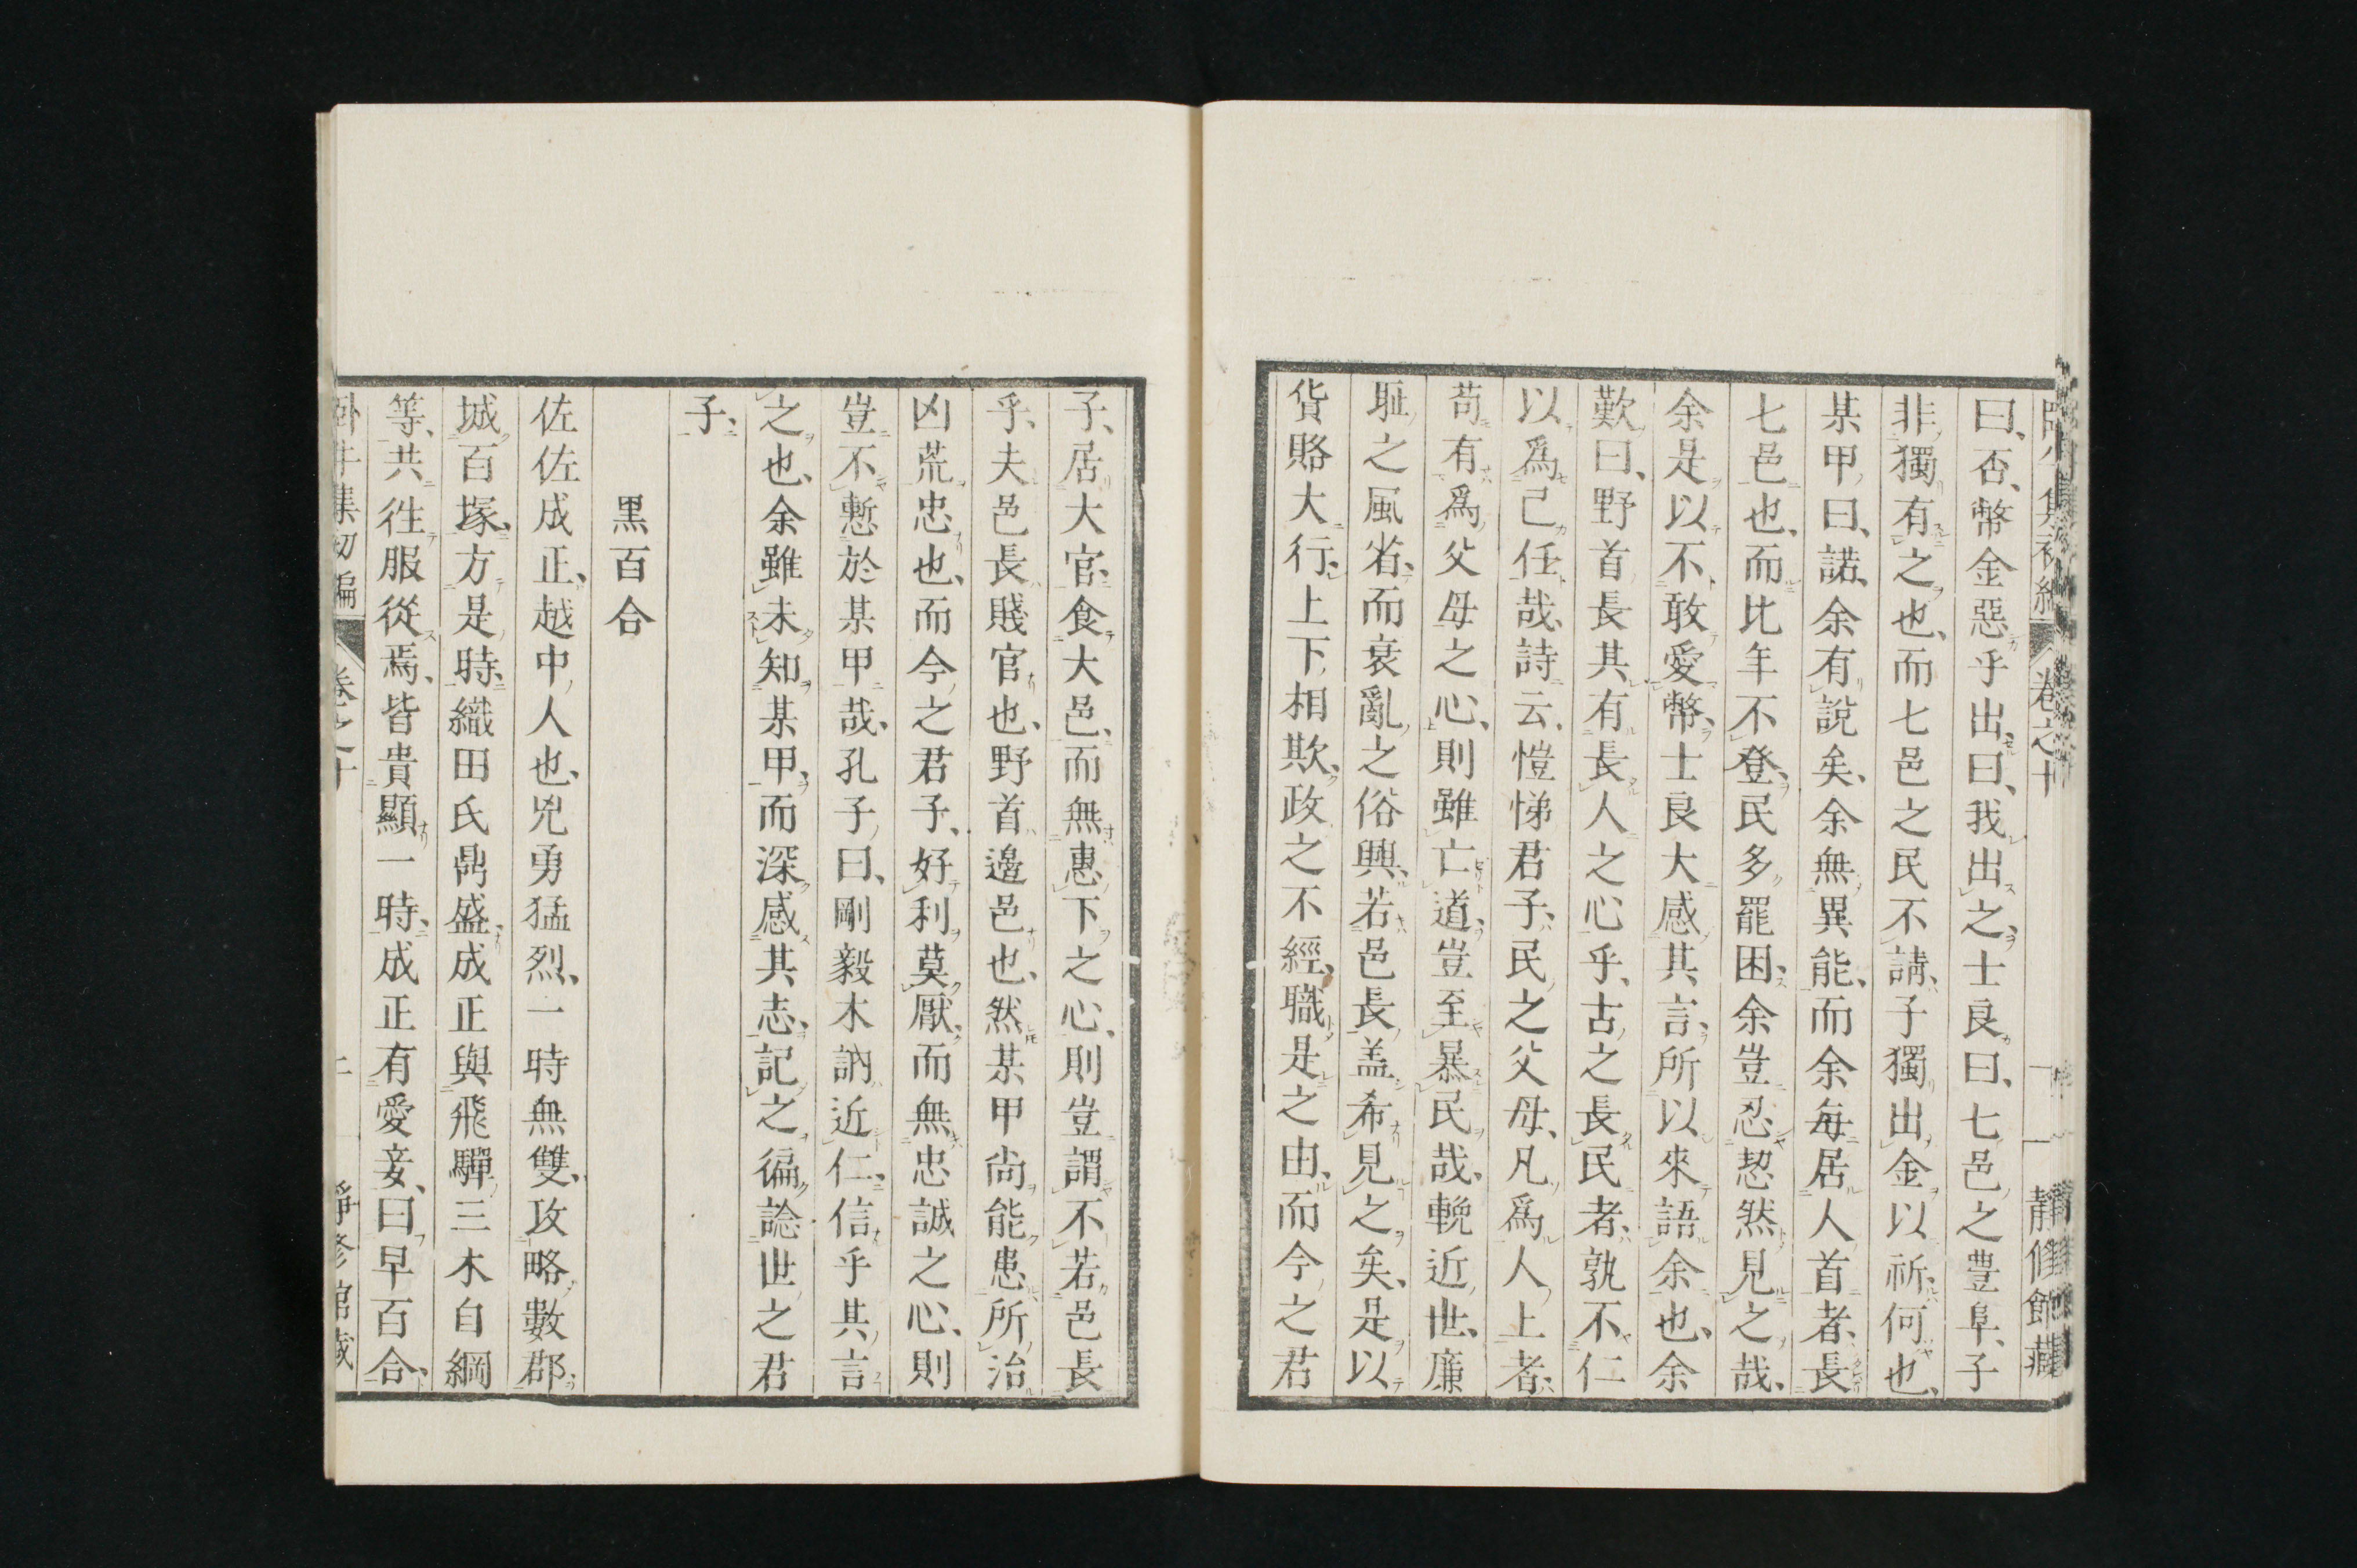 曰、否、幣金惡乎出、曰、我出之、士良曰、七邑之豊阜、子
非獨有之也、而七邑之民不請、子獨出金以祈、何也、
某甲曰、諾、余有說矣、余無異能、而余每居人首者、長
七邑也、而比年不登、民多罷困、余豈忍恝然見之哉、
余是以不敢愛幣、士良大感其言、所以來語余也、余
歎曰、野首長其有長人之心乎、古之長民者、孰不仁
以爲己任哉、詩云、愷悌君子、民之父母、凡爲人上者、
苟有爲父母之心、則雖亡道、豈至暴民哉、輓近世、廉
耻之風省、而衰亂之俗興、若邑長、盖希見之矣、是以
貨賂大行、上下相欺、政之不經、職是之由、而今之君
子、居大官、食大邑、而無惠下之心、則豈謂不若邑長
乎、夫邑長賤官也、野首邊邑也、然某甲尙能患所治
凶荒忠也、而今之君子、好利莫厭、而無忠誠之心、則
豈不慙於某甲哉、孔子曰、剛毅木訥近仁、信乎其言
之也、余雖未知某甲、而深感其志、記之徧諗世之君
子、
黒百合
佐佐成正、越中人也、兇勇猛烈、一時無雙、攻略數郡、
城百塚、方是時、織田氏鼎盛、成正與飛驒三木自綱
等、共徃服從焉、皆貴顯一時、成正有愛妾、曰早百合、
卷之十
靜修館藏